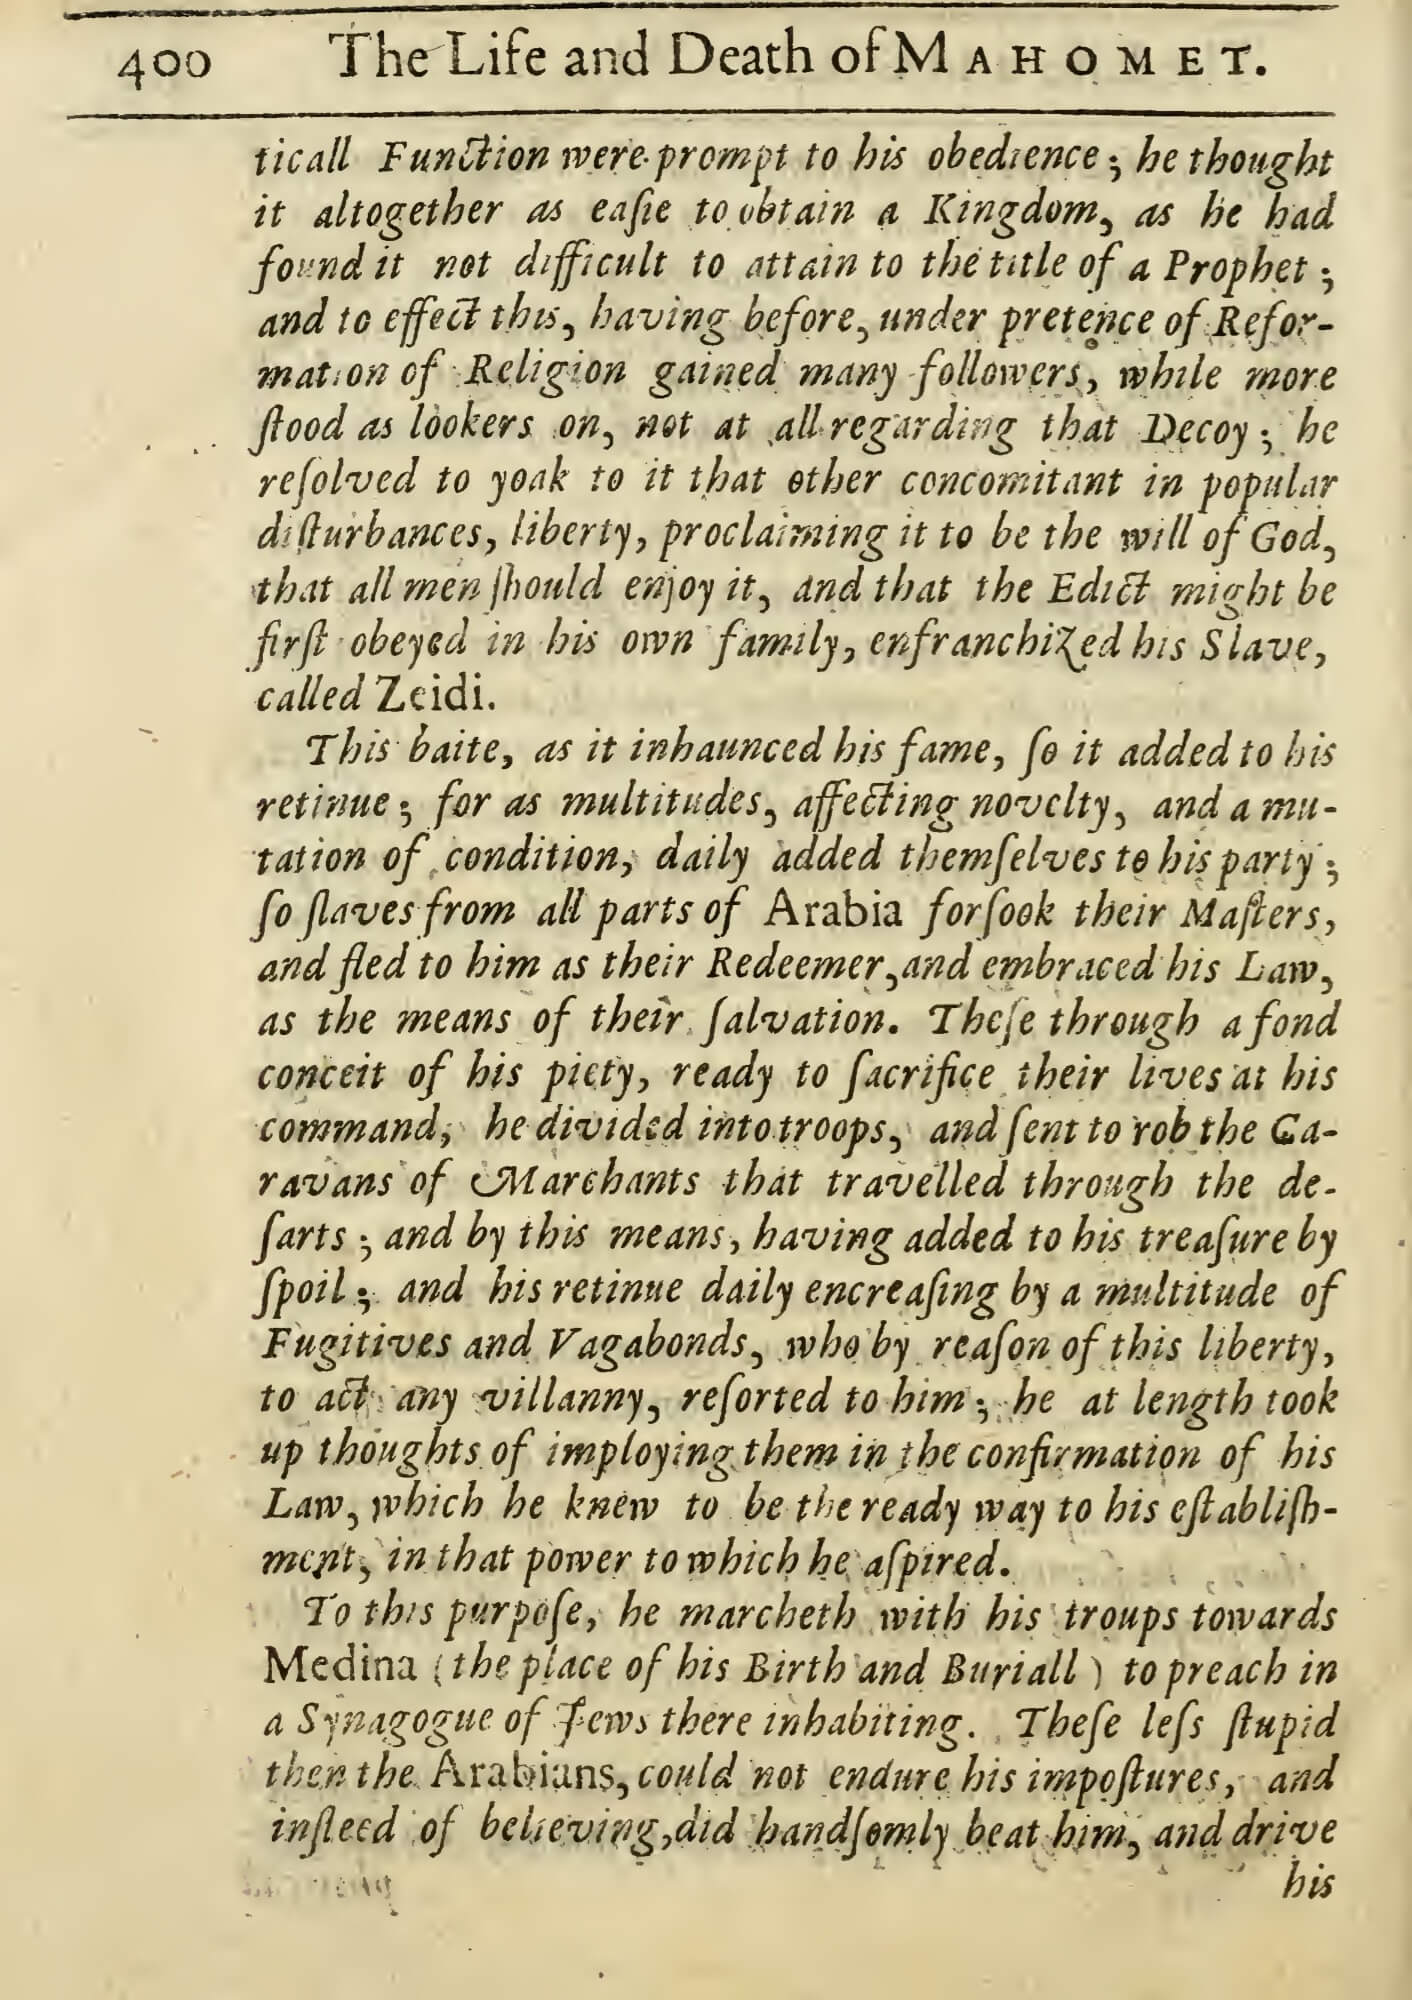 400 The Life and Death of MAHOMET.
ticall Function were prompt to his obedience; he thought
it altogether as eaſie to obtain a Kingdom, as he had
found it not difficult to attain to the title of a Prophet;
and to effect this, having before, under pretence of Refor-
mation of Religion gained many followers, while more
ſtood as lookers on, not at all regarding that Decoy; he
reſolved to yoak to it that other concomitant in popular
diſturbances, liberty, proclaiming it to be the will of God,
that all men ſhould enjoy it, and that the Edict might be
firſt obeyed in his own family, enfranchized his Slave,
called Zeidi.
This baite, as it inhaunced his fame, ſo it added to his
retinue; for as multitudes, affecting novelty, and a mu-
tation of condition, daily added themſelves to his party;
ſo ſlaves from all parts of Arabia forſook their Maſters,
and fled to him as their Redeemer, and embraced his Law,
as the means of their ſalvation. Theſe through a fond
conceit of his piety, ready to ſacrifice their lives at his
command, he divided into troops, and ſent to rob the Ca-
ravans of Marchants that travelled through the de-
ſarts; and by this means, having added to his treaſure by
ſpoil; and his retinue daily encreaſing by a multitude of
Fugitives and Vagabonds, who by reaſon of this liberty,
to act any villanny, reſorted to him; he at length took
up thoughts of imploying them in the confirmation of his
Law, which he knew to be the ready way to his eſtabliſh-
ment, in that power to which he aſpired.
To this purpoſe, he marcheth with his troups towards
Medina (the place of his Birth and Buriall) to preach in
a Synagogue of Jews there inhabiting. Theſe leſs ſtupid
then the Arabians, could not endure his impoſtures, and
inſteed of believing, did handſomly beat him, and drive
his